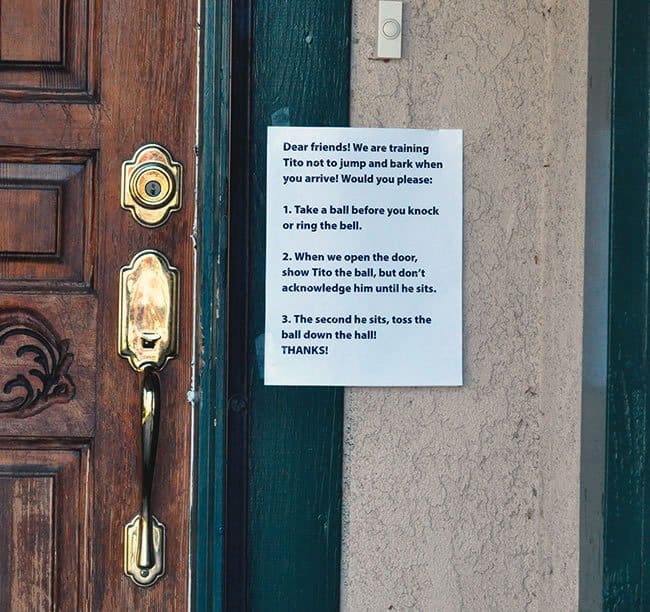 Dear friends! We are training
Tito not to jump and bark when
you arrive! Would you please:
1. Take a ball before you knock
or ring the bell.
2. When we open the door,
show Tito the ball, but don't
acknowledge him until he sits.
3. The second he sits, toss the
ball down the hall!
THANKS!